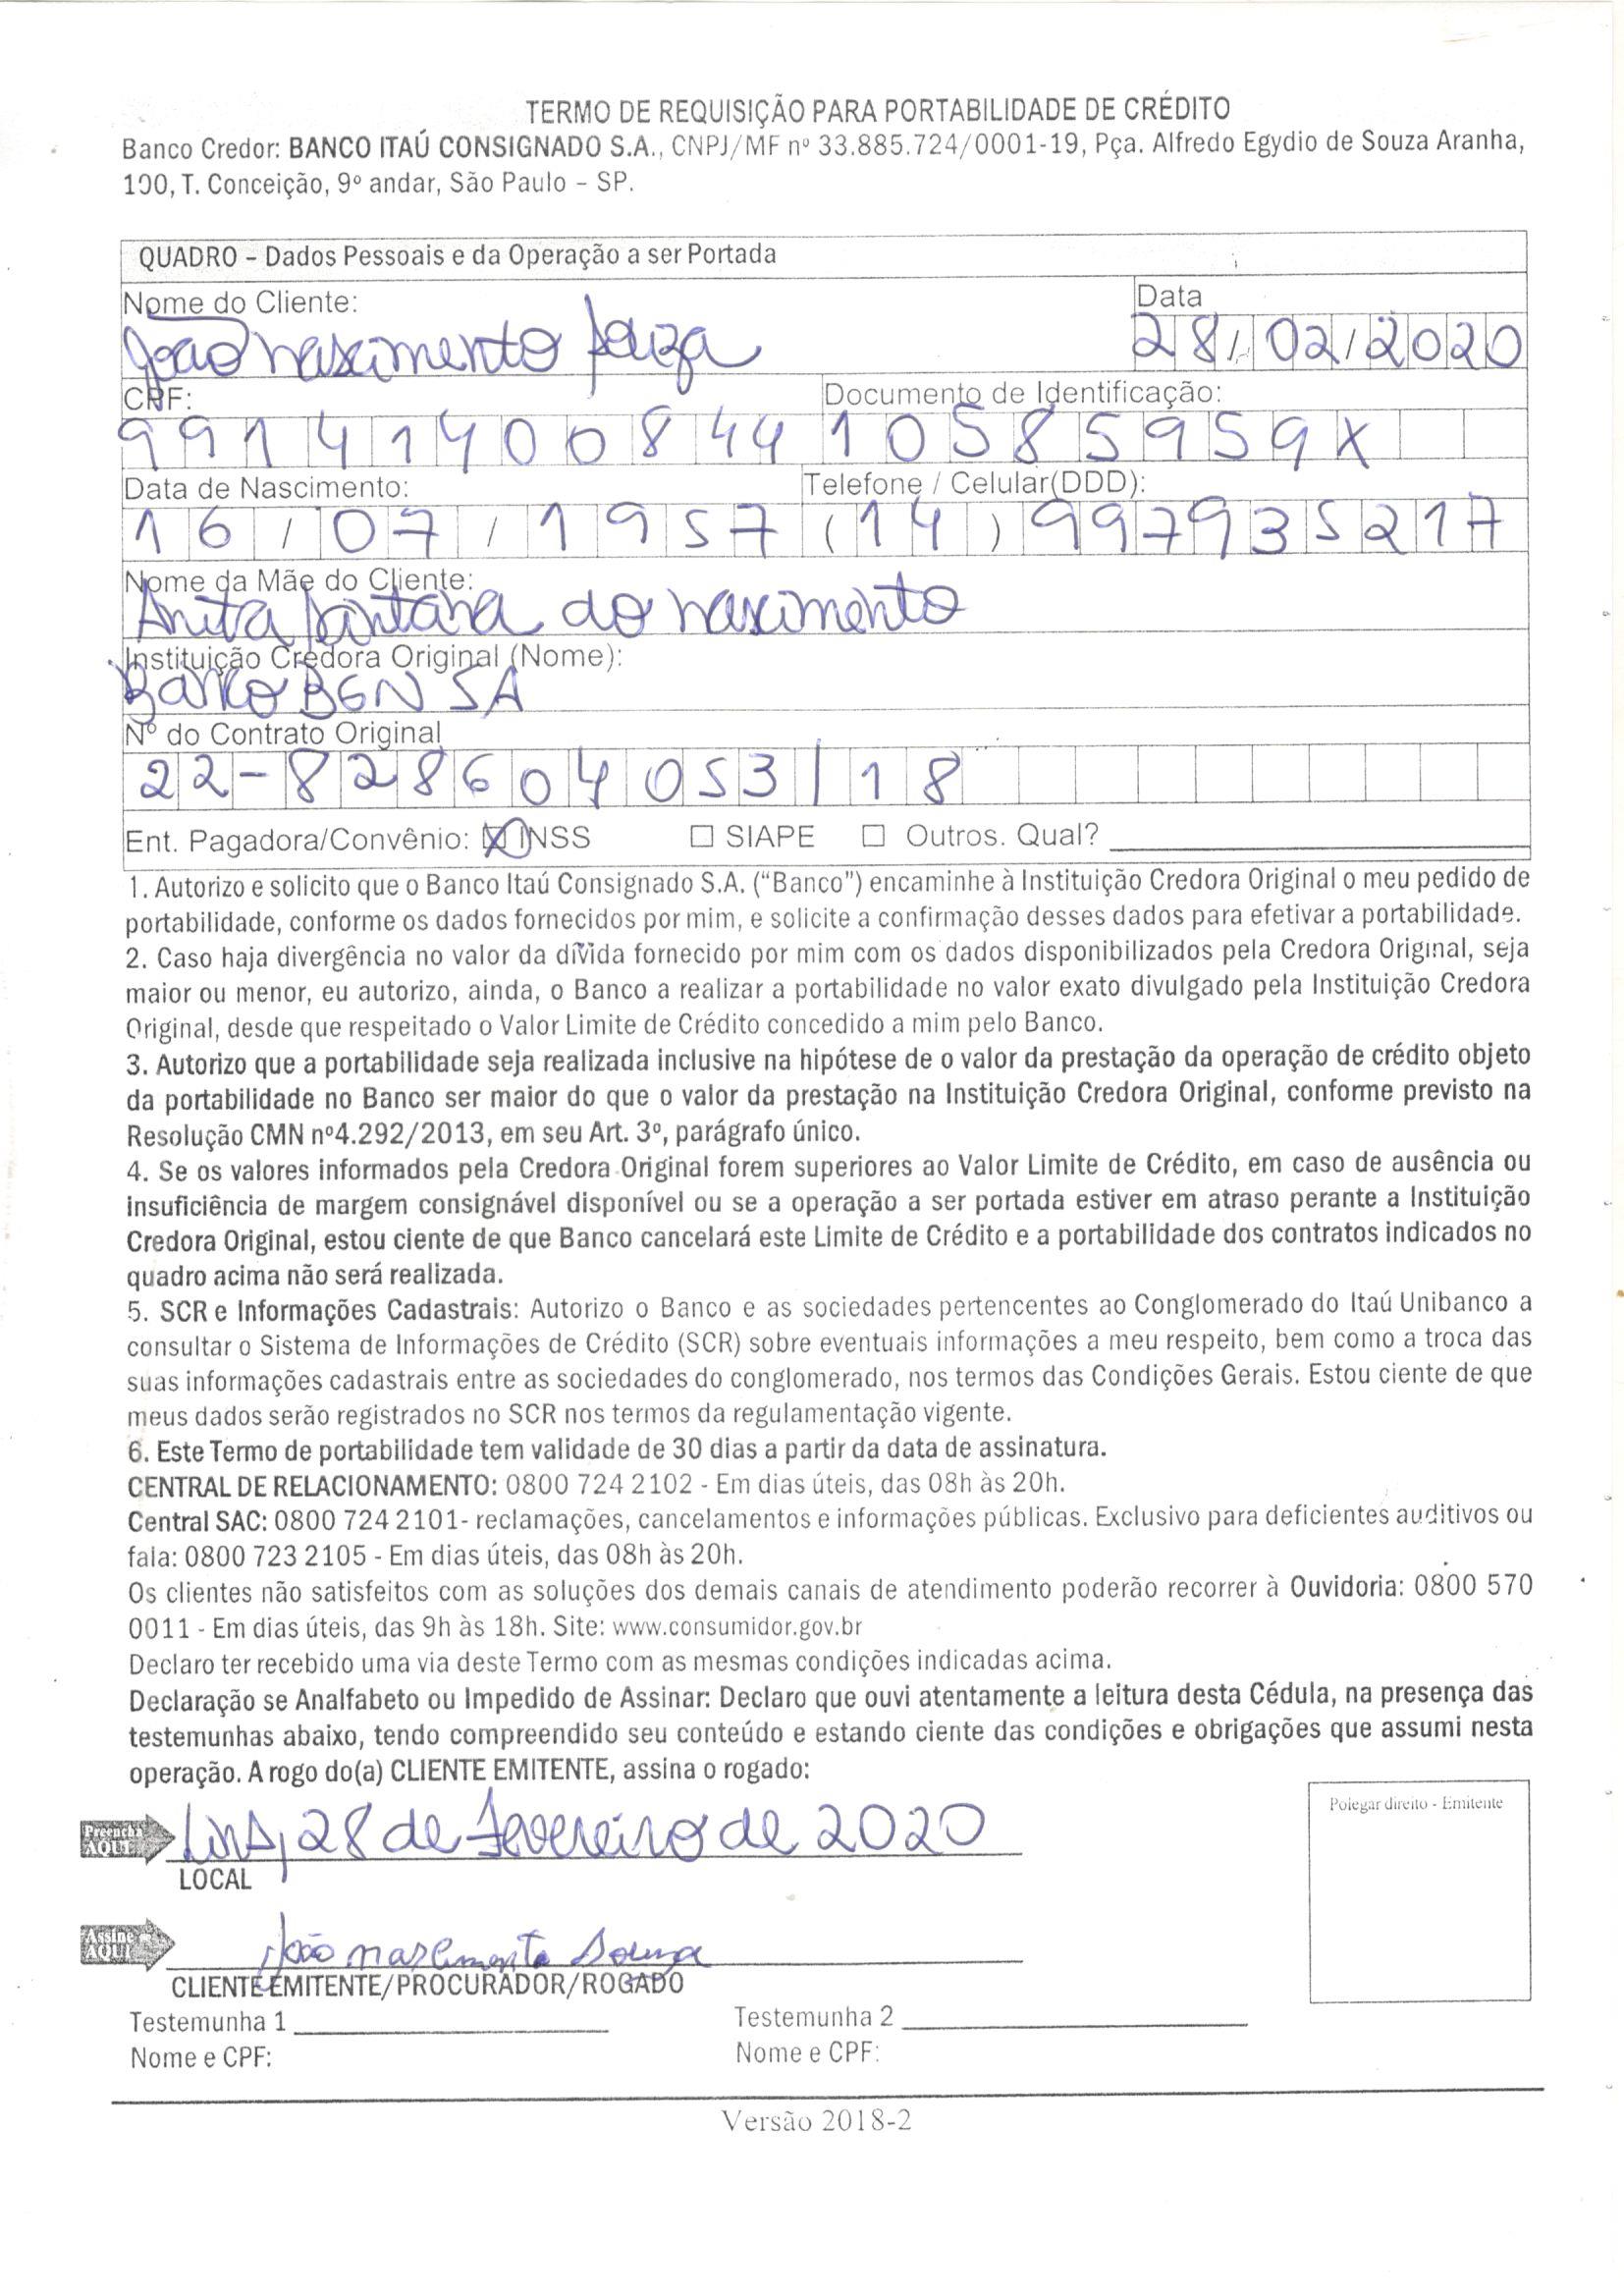 TERMO DE REQUISIÇÃO PARA PORTABILIDADE DE CRÉDITO
Banco Credor: BANCO ITAÚ CONSIGNADO S.A., CNPJ/MF nº 33.885.724/0001-19, Pça. Alfredo Egydio de Souza Aranha,
100, T. Conceição, 9º andar, São Paulo - SP.
QUADRO - Dados Pessoais e da Operação a ser Portada
Nome do Cliente: Data
João nascimento Souza 28/02/2020
CPF: Documento de Identificação:
99141400844 10585959X
Data de Nascimento: Telefone / Celular(DDD):
16/07/1957 (14) 997935217
Nome da Mãe do Cliente:
Anita Santana do nascimento
Instituição Credora Original (Nome):
Banco BGN SA
Nº do Contrato Original
22-828604053/18
Ent. Pagadora/Convênio: ☒ INSS ☐ SIAPE ☐ Outros. Qual?
1. Autorizo e solicito que o Banco Itaú Consignado S.A. (“Banco”) encaminhe à Instituição Credora Original o meu pedido de
portabilidade, conforme os dados fornecidos por mim, e solicite a confirmação desses dados para efetivar a portabilidade.
2. Caso haja divergência no valor da dívida fornecido por mim com os dados disponibilizados pela Credora Original, seja
maior ou menor, eu autorizo, ainda, o Banco a realizar a portabilidade no valor exato divulgado pela Instituição Credora
Original, desde que respeitado o Valor Limite de Crédito concedido a mim pelo Banco.
3. Autorizo que a portabilidade seja realizada inclusive na hipótese de o valor da prestação da operação de crédito objeto
da portabilidade no Banco ser maior do que o valor da prestação na Instituição Credora Original, conforme previsto na
Resolução CMN nº4.292/2013, em seu Art. 3º, parágrafo único.
4. Se os valores informados pela Credora Original forem superiores ao Valor Limite de Crédito, em caso de ausência ou
insuficiência de margem consignável disponível ou se a operação a ser portada estiver em atraso perante a Instituição
Credora Original, estou ciente de que Banco cancelará este Limite de Crédito e a portabilidade dos contratos indicados no
quadro acima não será realizada.
5. SCR e Informações Cadastrais: Autorizo o Banco e as sociedades pertencentes ao Conglomerado do Itaú Unibanco a
consultar o Sistema de Informações de Crédito (SCR) sobre eventuais informações a meu respeito, bem como a troca das
suas informações cadastrais entre as sociedades do conglomerado, nos termos das Condições Gerais. Estou ciente de que
meus dados serão registrados no SCR nos termos da regulamentação vigente.
6. Este Termo de portabilidade tem validade de 30 dias a partir da data de assinatura.
CENTRAL DE RELACIONAMENTO: 0800 724 2102 - Em dias úteis, das 08h às 20h.
Central SAC: 0800 724 2101- reclamações, cancelamentos e informações públicas. Exclusivo para deficientes auditivos ou
fala: 0800 723 2105 - Em dias úteis, das 08h às 20h.
Os clientes não satisfeitos com as soluções dos demais canais de atendimento poderão recorrer à Ouvidoria: 0800 570
0011 - Em dias úteis, das 9h às 18h. Site: www.consumidor.gov.br
Declaro ter recebido uma via deste Termo com as mesmas condições indicadas acima.
Declaração se Analfabeto ou Impedido de Assinar: Declaro que ouvi atentamente a leitura desta Cédula, na presença das
testemunhas abaixo, tendo compreendido seu conteúdo e estando ciente das condições e obrigações que assumi nesta
operação. A rogo do(a) CLIENTE EMITENTE, assina o rogado:
Polegar direito - Emitente
Preencha AQUI Lins, 28 de fevereiro de 2020
LOCAL
Assine AQUI João nascimento Souza
CLIENTE EMITENTE/PROCURADOR/ROGADO
Testemunha 1 Testemunha 2
Nome e CPF: Nome e CPF:
Versão 2018-2